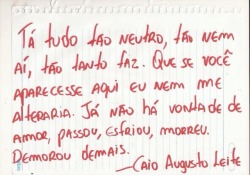 TÁ TUDO TÃO NEUTRO, TÃO NEM
AÍ, TÃO TANTO FAZ. QUE SE VOCÊ
APARECESSE AQUI EU NEM ME
ALTERARIA. JÁ NÃO HÁ VONTADE DE
AMOR, PASSOU, ESFRIOU, MORREU.
DEMOROU DEMAIS.
—CAIO AUGUSTO LEITE